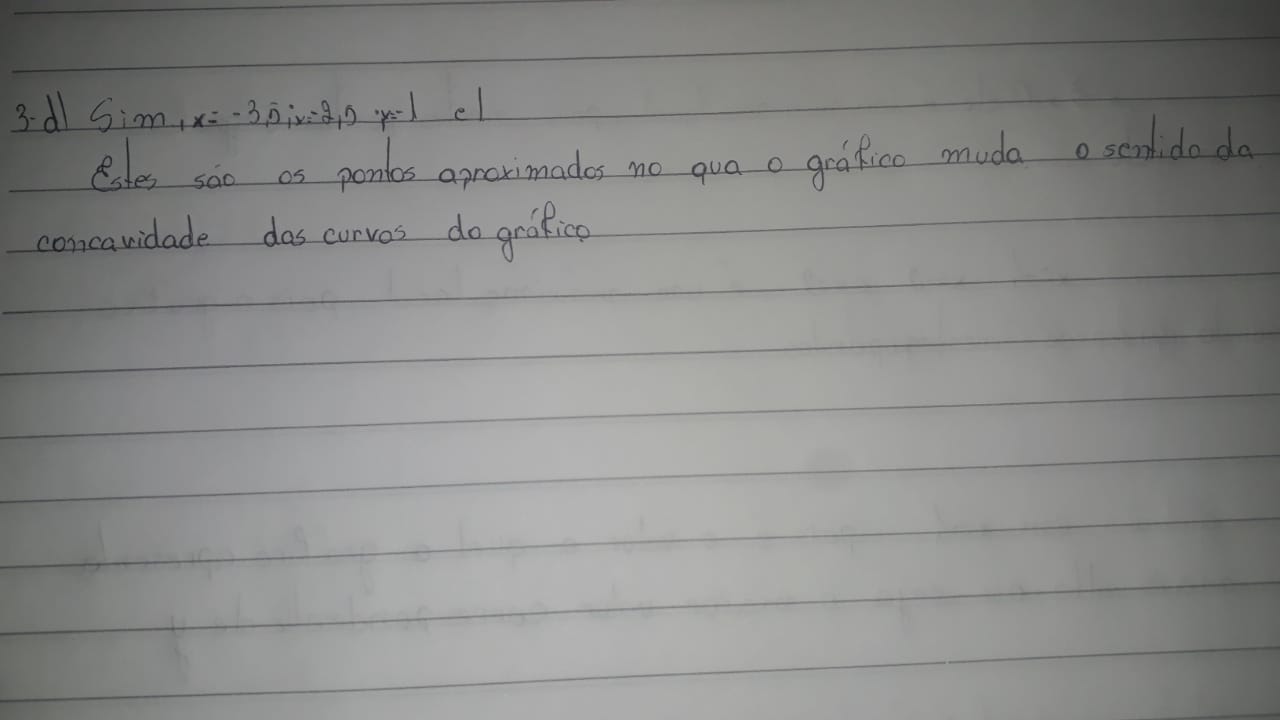 3-d) Sim, x= -3,5; x=-2,5 x=-1 e 1
Estes são os pontos aproximados no qua o gráfico muda o sentido da
concavidade das curvas do gráfico